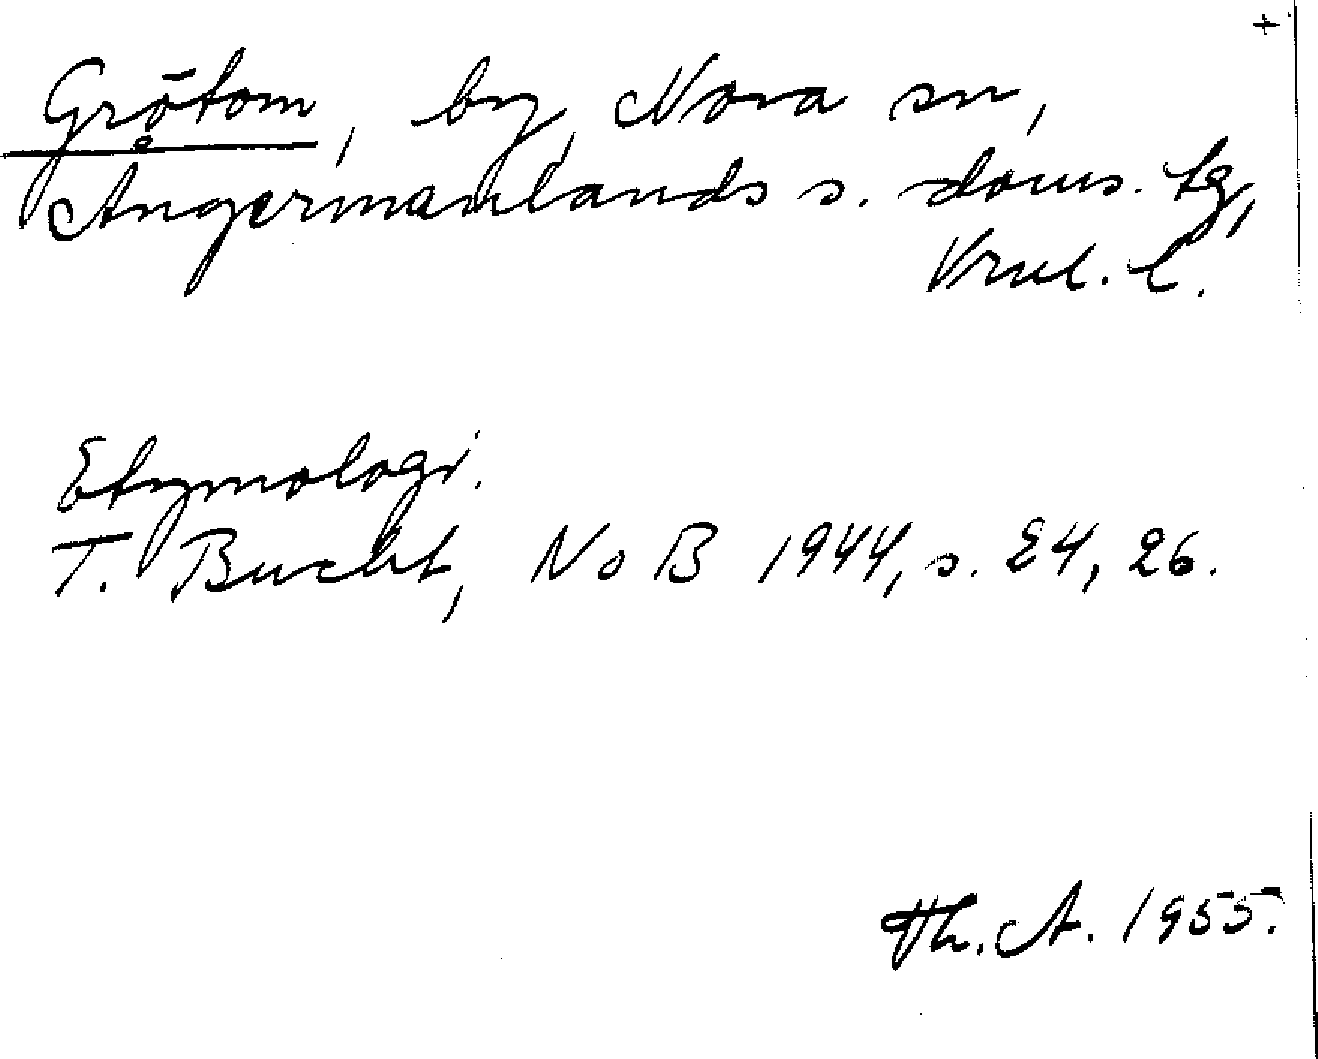 +
Grötom, by, Nora sn,
Ångermanlands s. doms. tg,
Vnl. l.
Etymologi.
T. Bucht, NoB 1944, s. 24, 26.
Th. A. 1955.